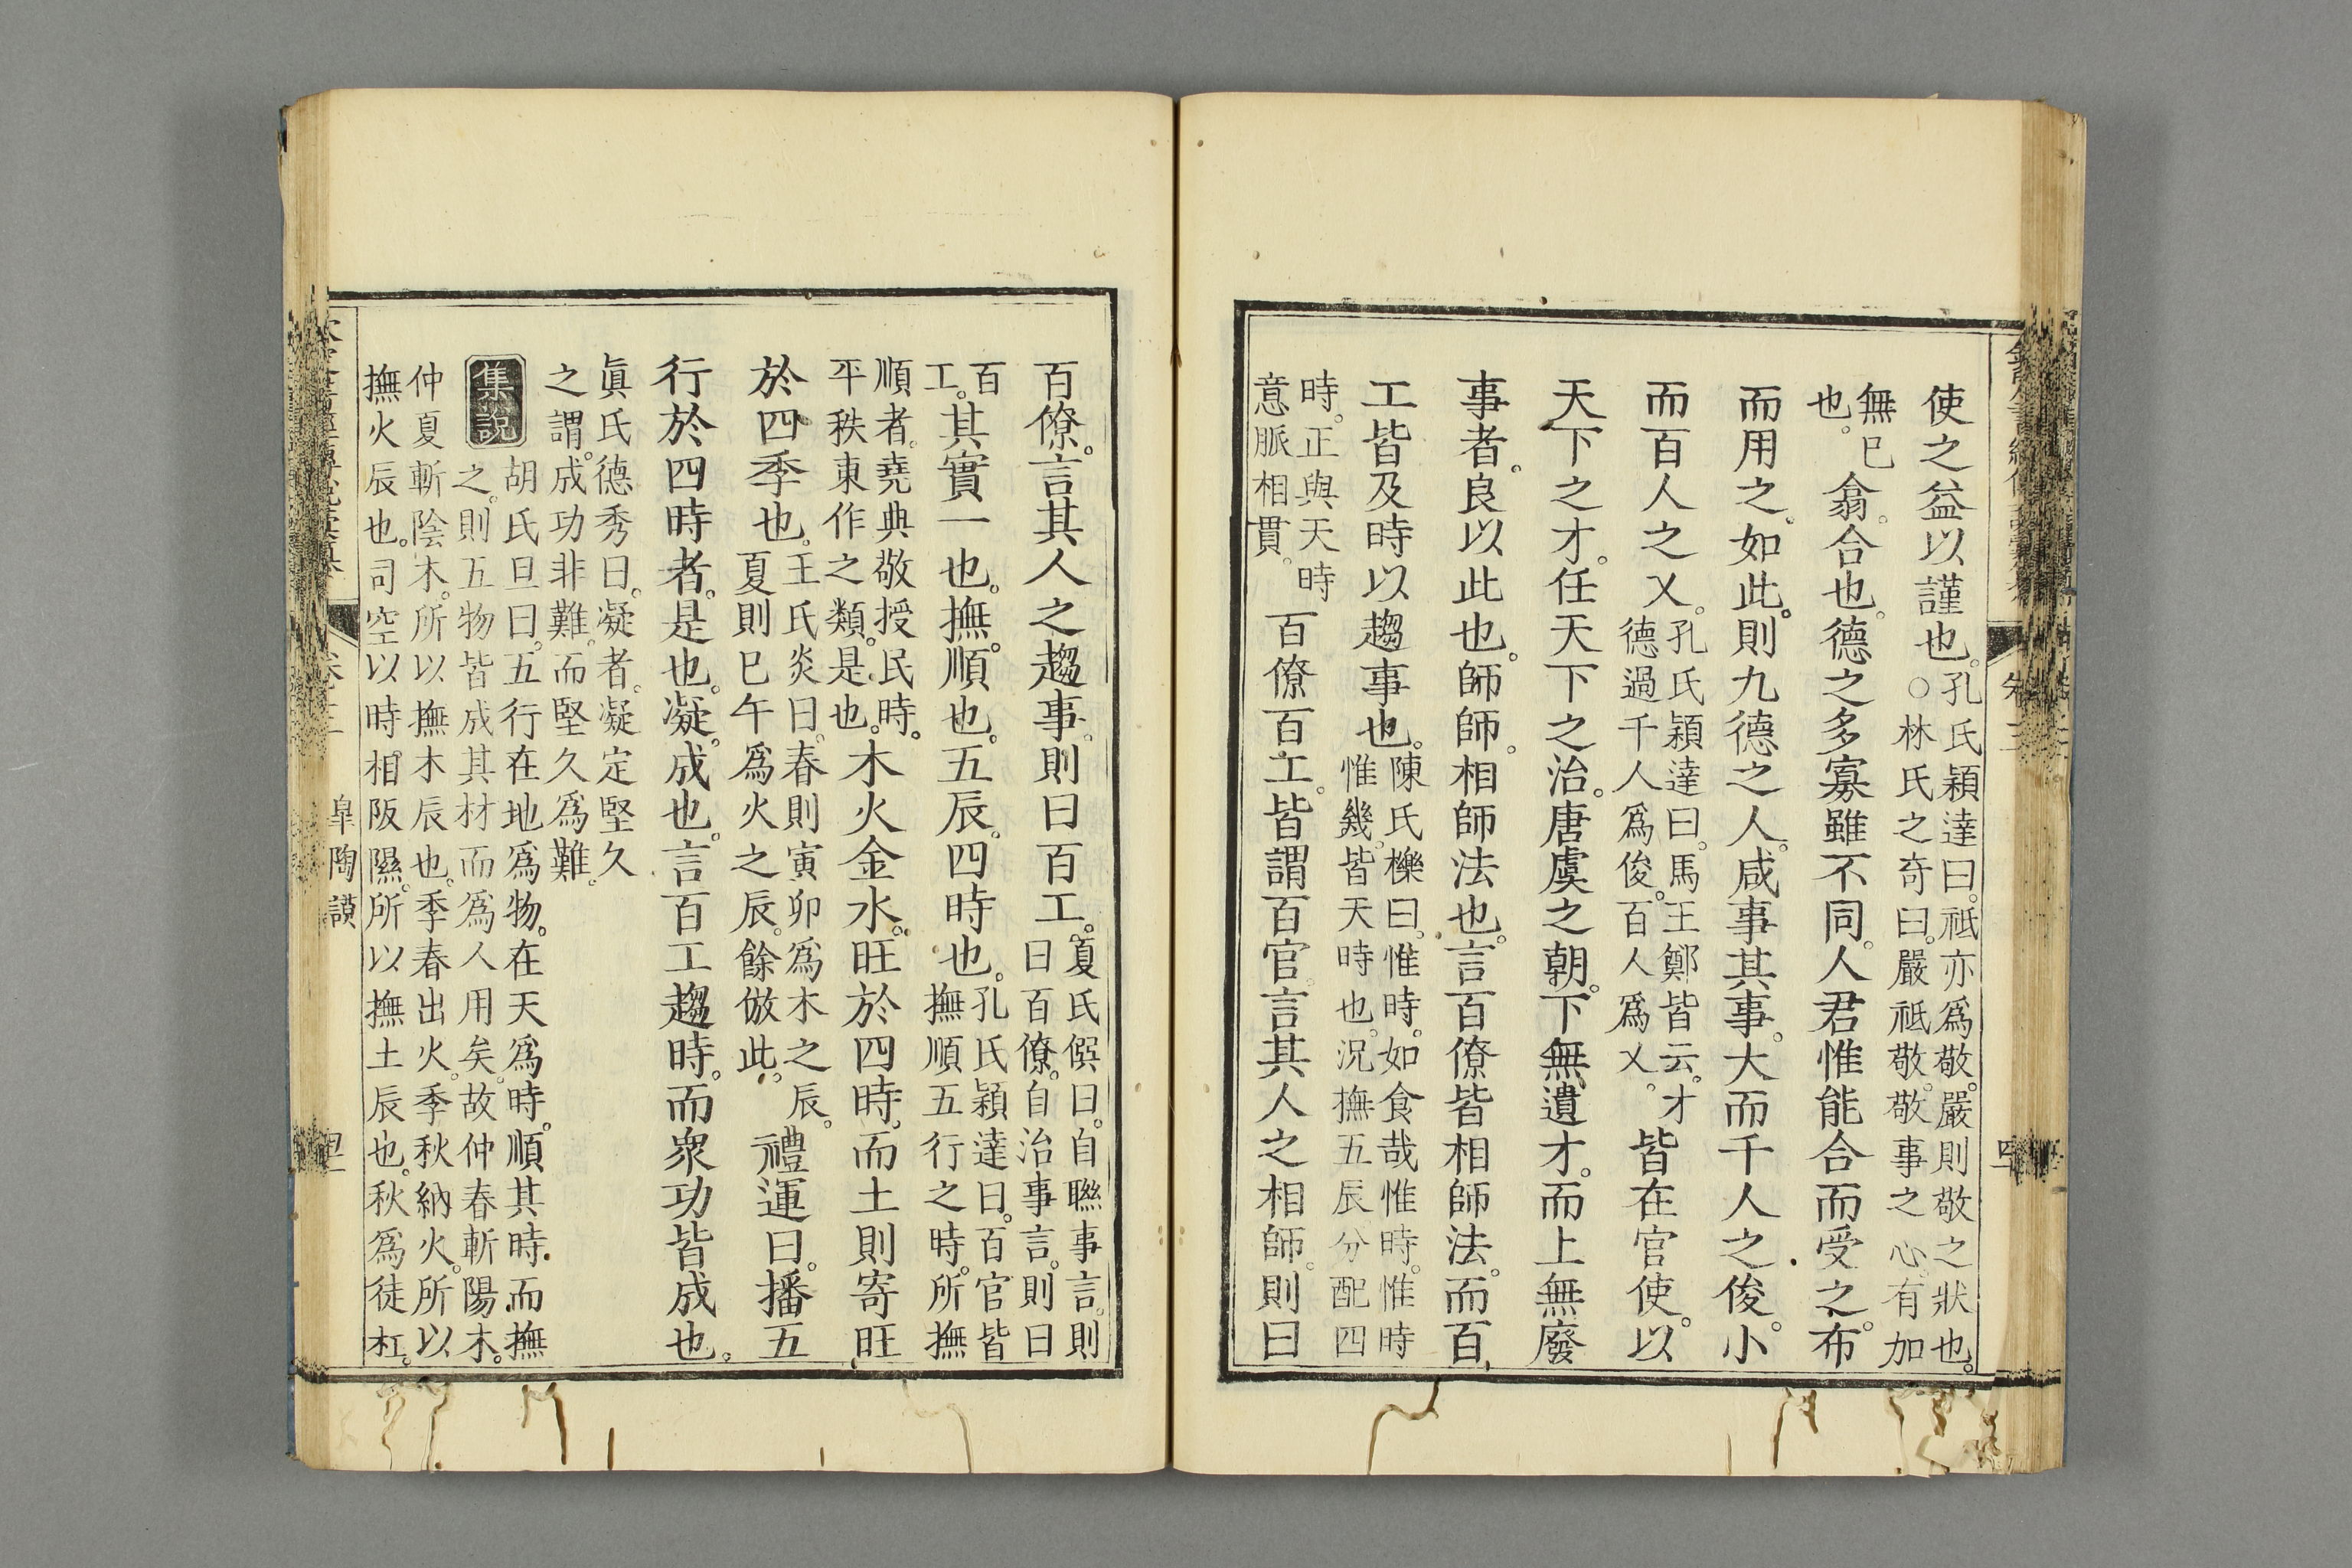 使之益以謹也。孔氏穎達曰。祗亦爲敬。嚴則敬之狀也。
○林氏之奇曰。嚴祗敬。敬事之心。有加
無已
也。
翕。合也。德之多寡雖不同。人君惟能合而受之。布
而用之。如此。則九德之人。咸事其事。大而千人之俊。小
而百人之乂。孔氏穎達曰。馬王鄭皆云。才
德過千人爲俊。百人爲乂。
皆在官使。以
天下之才。任天下之治。唐虞之朝。下無遺才。而上無廢
事者。良以此也。師師。相師法也。言百僚皆相師法。而百
工皆及時以趨事也。陳氏櫟曰。惟時。如食哉惟時。惟時
惟幾。皆天時也。況撫五辰分配四
時。正與天時
意脈相貫。
百僚百工。皆謂百官。言其人之相師。則曰
百僚。言其人之趨事。則曰百工。夏氏僎曰。自聯事言。則
曰百僚。自治事言。則曰
百
工。
其實一也。撫。順也。五辰。四時也。孔氏穎達曰。百官皆
撫順五行之時。所撫
順者。堯典敬授民時。
平秩東作之類。是也。
木火金水。旺於四時。而土則寄旺
於四季也。王氏炎曰。春則寅卯爲木之辰。
夏則巳午爲火之辰。餘倣此。
禮運曰。播五
行於四時者。是也。凝。成也。言百工趨時。而衆功皆成也。
眞氏德秀曰。凝者。凝定堅久
之謂。成功非難。而堅久爲難。
集說
胡氏旦曰。五行在地爲物。在天爲時。順其時。而撫
之。則五物皆成其材而爲人用矣。故仲春斬陽木。
仲夏斬陰木。所以撫木辰也。季春出火。季秋納火。所以
撫火辰也。司空以時相阪隰。所以撫土辰也。秋爲徒杠。
皐陶謨